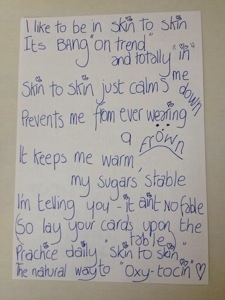 I like to be in skin to skin
Its BANG "on trend"
and totally "in"
Skin to skin just calms me down
Prevents me from ever wearing
a frown
It keeps me warm,
my sugars stable
I'm telling you - it aint no fable
So lay your cards upon the
table
Practice daily "skin to skin"
The natural way to "Oxy-tocin"